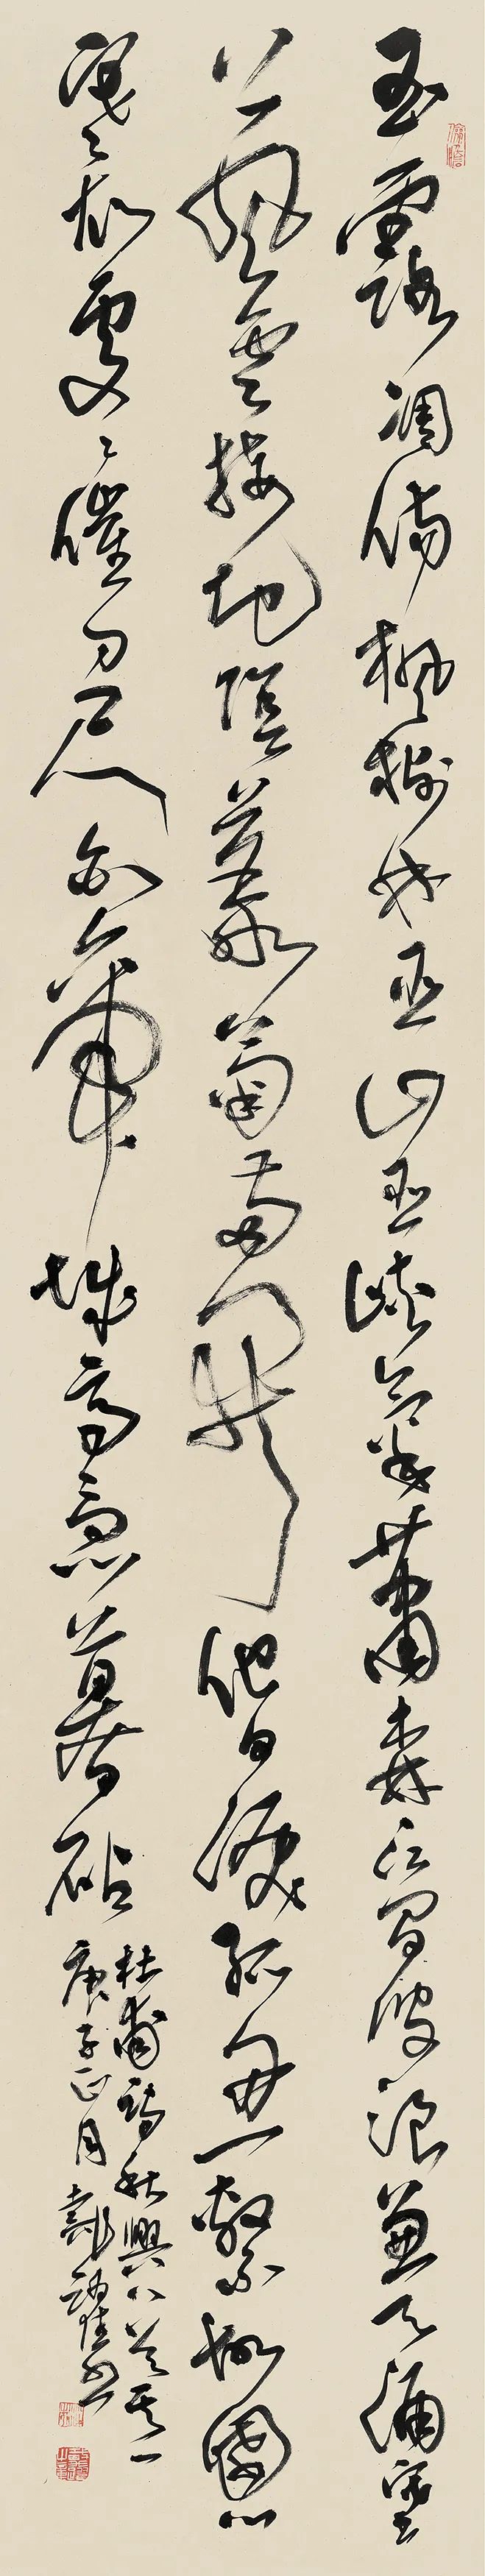 玉露凋傷楓樹林巫山巫峽氣蕭森江間波浪兼天涌塞
上風雲接地陰叢菊兩開他日淚孤舟一繫故園心
寒衣處〻催刀尺白帝城高急暮砧
杜甫詩秋興八首其一
庚子正月